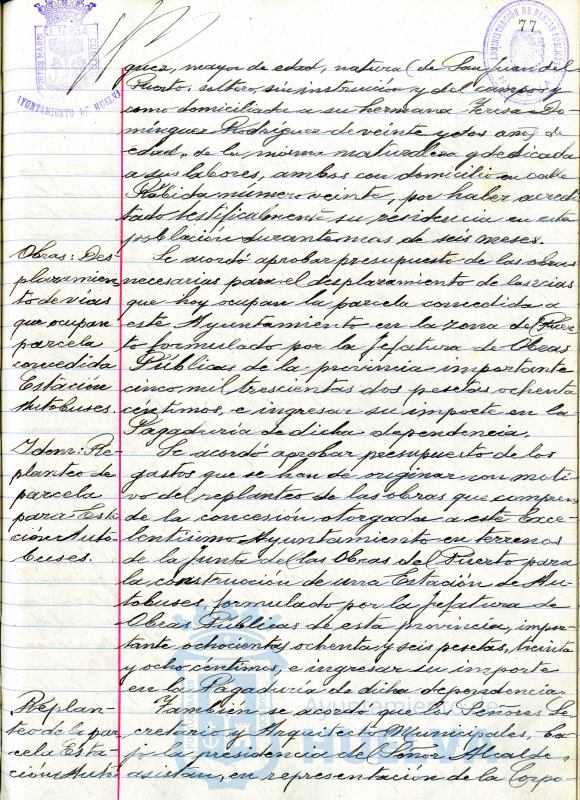 77
AYUNTAMIENTO DE HUELVA
ADMINISTRACIÓN DE RENTAS PÚBLICAS
quez, mayor de edad, natural de San Juan del
Puerto, soltero, sin instrucción y del campo; y
como domiciliada a su hermana Teresa Do-
mínguez Rodríguez de veinte y dos años de
edad, de la misma naturaleza y dedicada
a sus labores, ambos con domicilio en calle
Rábida número veinte, por haber acredi-
tado testificalmente su residencia en esta
población durante mas de seis meses.
Obras: Des-
plazamien-
to de vias
que ocupan
parcela
concedida
Estación
Autobuses.
Se acordó aprobar presupuesto de las obras
necesarias para el desplazamiento de las vias
que hoy ocupan la parcela concedida a
este Ayuntamiento en la zona de Puer-
to formulado por la Jefatura de Obras
Públicas de la provincia importante
cinco mil trescientas dos pesetas ochenta
centimos, e ingresar su importe en la
Pagaduría de dicha dependencia.
Idem: Re-
planteo de
parcela
para Esta-
ción Auto-
buses.
Se acordó aprobar presupuesto de los
gastos que se han de originar con moti-
vo del replanteo de las obras que compren-
de la concesión otorgada a este Exce-
lentísimo Ayuntamiento en terrenos
de la Junta de las Obras del Puerto para
la construcción de una Estación de Au-
tobuses, formulado por la Jefatura de
Obras Públicas de esta provincia, impor-
tante ochocientas ochenta y seis pesetas, treinta
y ocho centimos, e ingresar su importe
en la Pagaduría de dicha dependencia.
Replan-
teo de la par-
cela Esta-
ción Auto-
También se acordó que los Señores Se-
cretario y Arquitecto Municipales, ba-
jo la presidencia del Señor Alcalde,
asistan, en representación de la Corpo-
Ayuntamiento de
Huelva